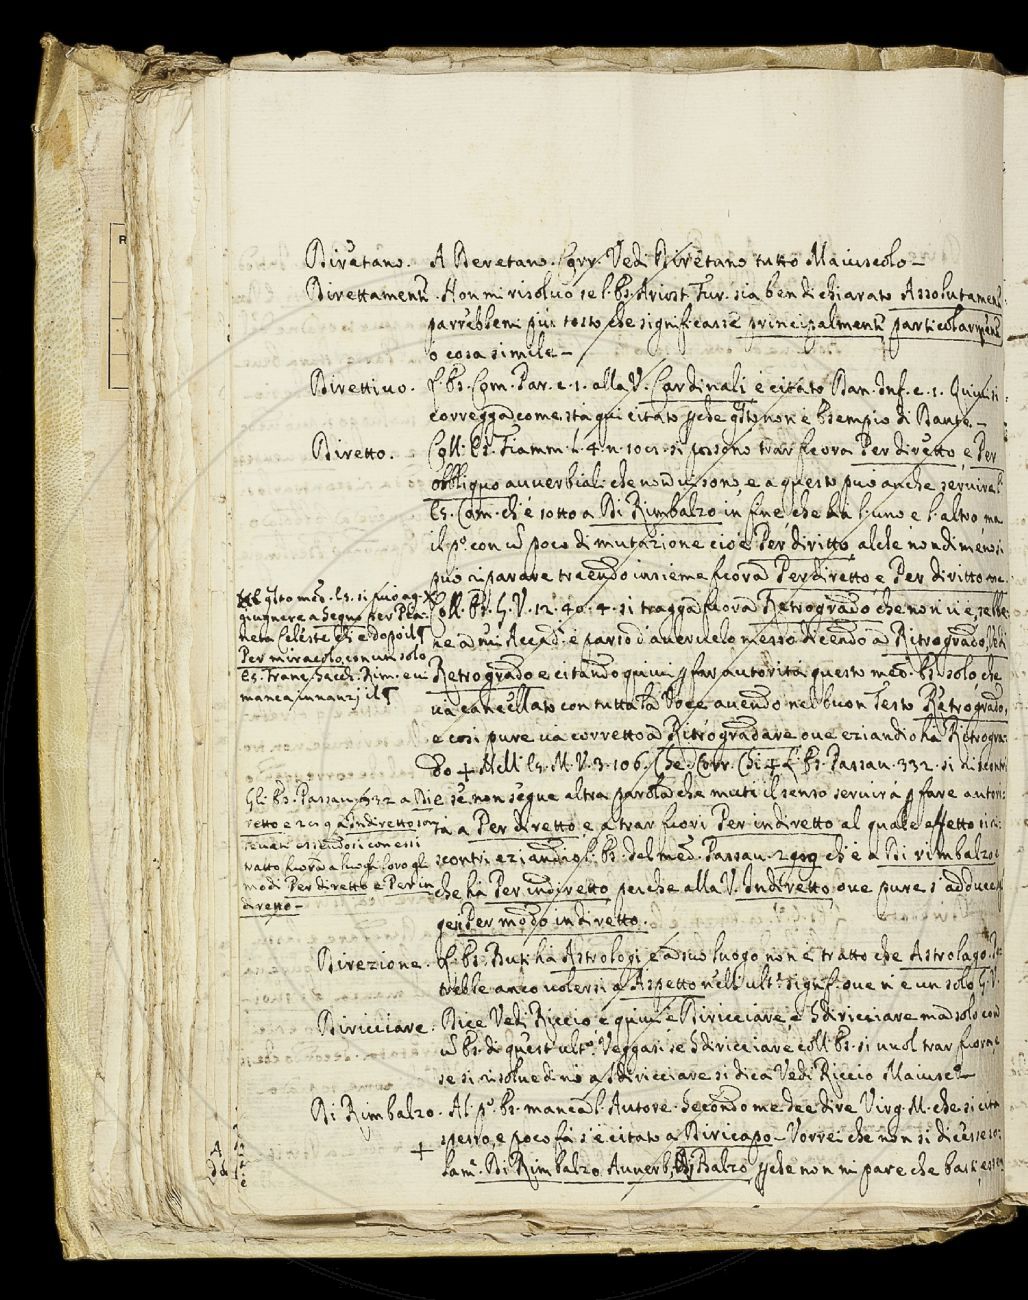 Diretano. A Deretano. Corr. Vedi Diretano tutto Maiuscolo –
Direttament. Non mi risolvo se l'Es. Ariost. Fur. sia ben dichiarato Assolutament
parrebbemi più tosto che significasse principalment particolarment
o cosa simile –
Direttivo. L'Es. Com. Par. c. 1. alla V. Cardinali è citato Dan. Inf. c. 1. Quivi si
corregga come sta qui citato non è Esempio di Dante. –
Diretto. Coll' Es. Fiamm. l. 4. n. si possono trar fuora Per diretto, e Per
obbliquo avverbiali che non vi sono, e a questo può anche servire l'
Es. Com. ch'è sotto a Di Rimbalzo in fine che ha l'uno e l'altro, ma
il p.º con un poco di mutazione cioè Per diritto, al che nondimeno si
può riparare traendo insieme fuora Per diretto, e Per diritto me.
Coll' Es. G. V. 12. 40. 4. si tragga fuora Retrogrado che non vi è, sebbe
ne a mi Accad. è parso d'avervelo messo dicendo a Retrogrado, Vedi
Retrogrado e citando quivi p far autorità questo med.º Es. solo, che
va cancellato con tutta la Voce avendo nel buon Testo Retrogrado,
e così pure va corretto a Retrogradare ove eziandio ha Retrogra:
do + Nell' Es. M. V. 3. 106. Che. Corr. Chi + L'Es. Passav. 332. si
e se non segue altra parola che muti il senso servirà p fare autori:
tà a Per diretto, e a trar fuori Per indiretto al quale effetto si ri:
scontri eziandio l'Es. del med.º Passav. ch'è a Di rimbalzo
che ha Per indiretto, perché alla V. Indiretto, ove pure s'adduce
Per modo indiretto.
L' Es. si può ag
giugnere a Segno per Pia
neta Celeste e dopo il ¶
Per miracolo, con un solo
Es. Franc. Sacch. Rim. e vi
manca innanzi il ¶
Gli Es. Passav. 332 a Di
retto e a Indiretto
essendosi con essi
tratto fuora a luoghi loro gli
modi Per diretto e Per in
diretto –
Direzione. L'Es. But. ha Astrologi, e a suo luogo non è tratto che Astrolago. Po
trebbe anco volersi a Aspetto nell' ult.º signif. ove n'è un solo G. V.
Diricciare. Dice Vedi Riccio e quivi è Diricciare, e Sdiricciare ma solo con
un Es. di quest' ult.º Veggasi se Sdiricciare coll' Es. si vuol trar fuora, e
se si risolve di no a Sdiricciare si dica Vedi Riccio Maiusc.º –
Di Rimbalzo. Al p.º Es. manca l'Autore. Secondo me dee dire Virg. M. che si cita
spesso, e poco fa s'è citato a Diricapo – Vorrei che non si dicesse so:
+ lam.º Di Rimbalzo. Avverb. Di Balzo non mi pare che basti, e